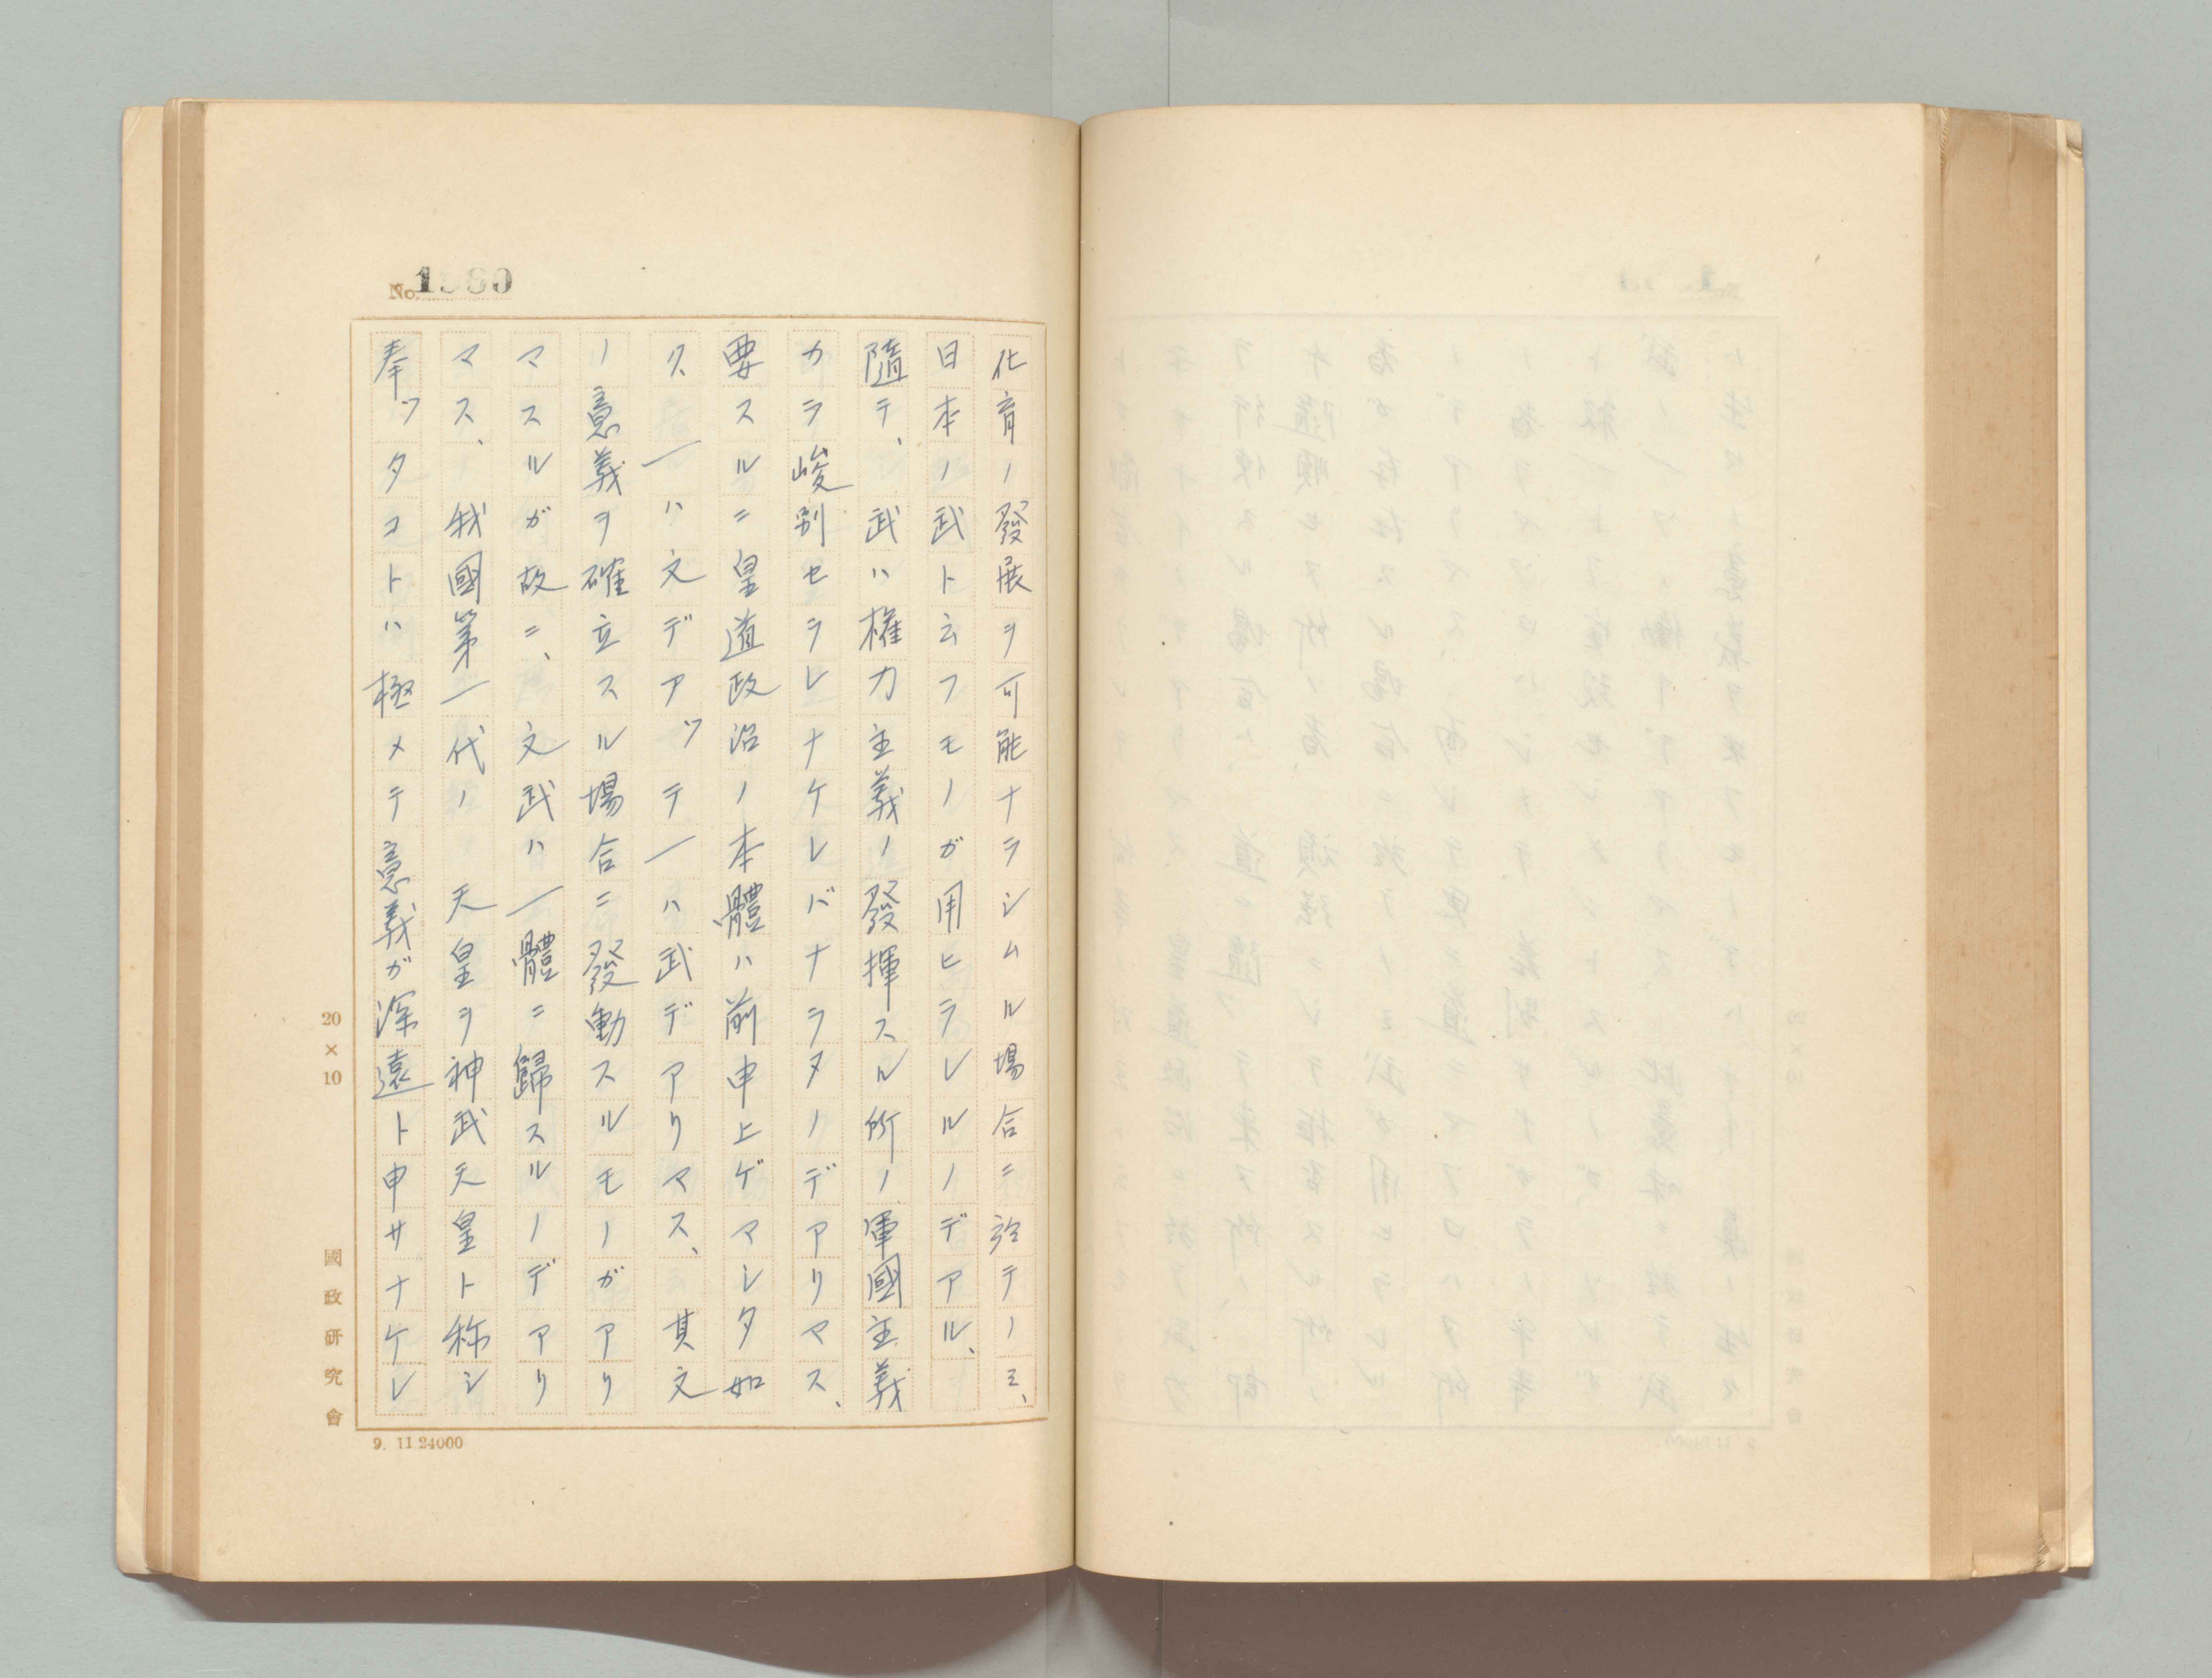 化育ノ發展ヲ可能ナラシムル場合ニ於テノミ、
日本ノ武ト云フモノガ用ヒラレルノデアル、
隨テ、武ハ權力主義ノ發揮スル所ノ軍國主義
カラ峻別セラレナケレバナラヌノデアリマス、
要スルニ皇道政治ノ本體ハ前申上ゲマシタ如
ク、一ハ文デアツテ一ハ武デアリマス、其文
ノ意義ヲ確立スル場合ニ發動スルモノガアリ
マスルガ故ニ、文武ハ一體ニ歸スルノデアリ
マス、我國第一代ノ 天皇ヲ神武天皇ト称シ
奉ツタコトハ極メテ意義ガ深遠ト申サナケレ
20×10
國政研究會
9. 11 24000